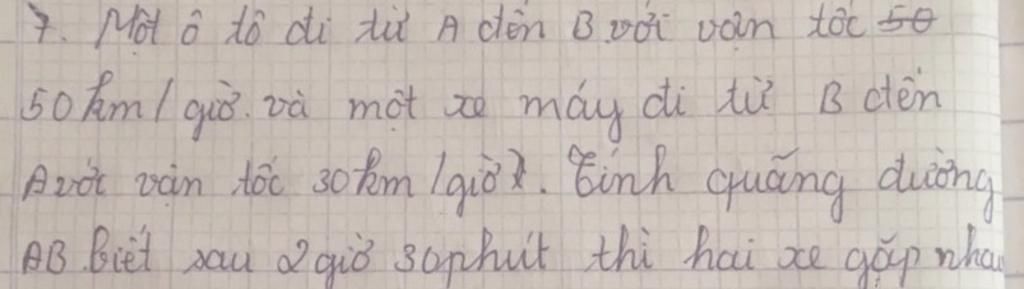 7. Một ô tô đi từ A đến B với vận tốc 50
50km/giờ. và một xe máy đi từ B đến
A với vận tốc 30km/giờ. Tính quãng đường
AB. Biết sau 2 giờ 30phút thì hai xe gặp nhau